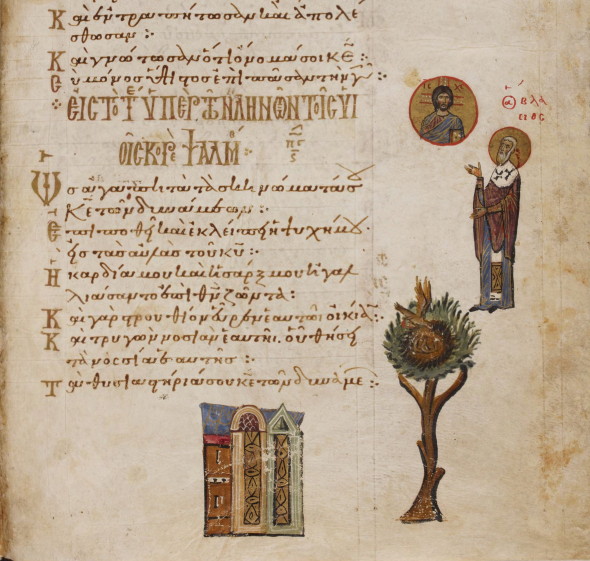 Καὶ ἐντραπήτωσαν καὶ ἀπολέ
σθωσαν:
Καὶ γνώτωσαν ὅτι ὄνομά σοι κ̅ε̅:
σὺ μόνος ὕψιστος ἐπὶ πᾶσαν τὴν γῆν:
ΕΙΣ ΤΟ Τ ΥΠΕΡ ΤΩΝ ΛΗΝΩΝ ΤΟΙΣ ΥΙ
ΟΙΣ ΚΟΡΕ ΨΑΛΜΟ
Ὡς ἀγαπητὰ τὰ σκηνώματά σου
κ̅ε̅ τῶν δυνάμεων:
Ἐπιποθεῖ καὶ ἐκλείπει ἡ ψυχή μου
εἰς τὰς αὐλὰς τοῦ κ̅υ̅:
Ἡ καρδία μου καὶ ἡ σάρξ μου ἠγαλ
λιάσαντο ἐπὶ θ̅ν̅ ζῶντα:
Καὶ γὰρ στρουθίον εὗρεν ἑαυτῷ οἰκίαν:
Καὶ τρυγὼν νοσσιὰν ἑαυτῇ. οὗ θήσει
τὰ νοσσία ἑαυτῆς:
Τὰ θυσιαστήριά σου κ̅ε̅ τῶν δυνάμε:
Ι̅Ϲ̅ Χ̅Ϲ̅
ΒΛΑ
ϹΙΟϹ